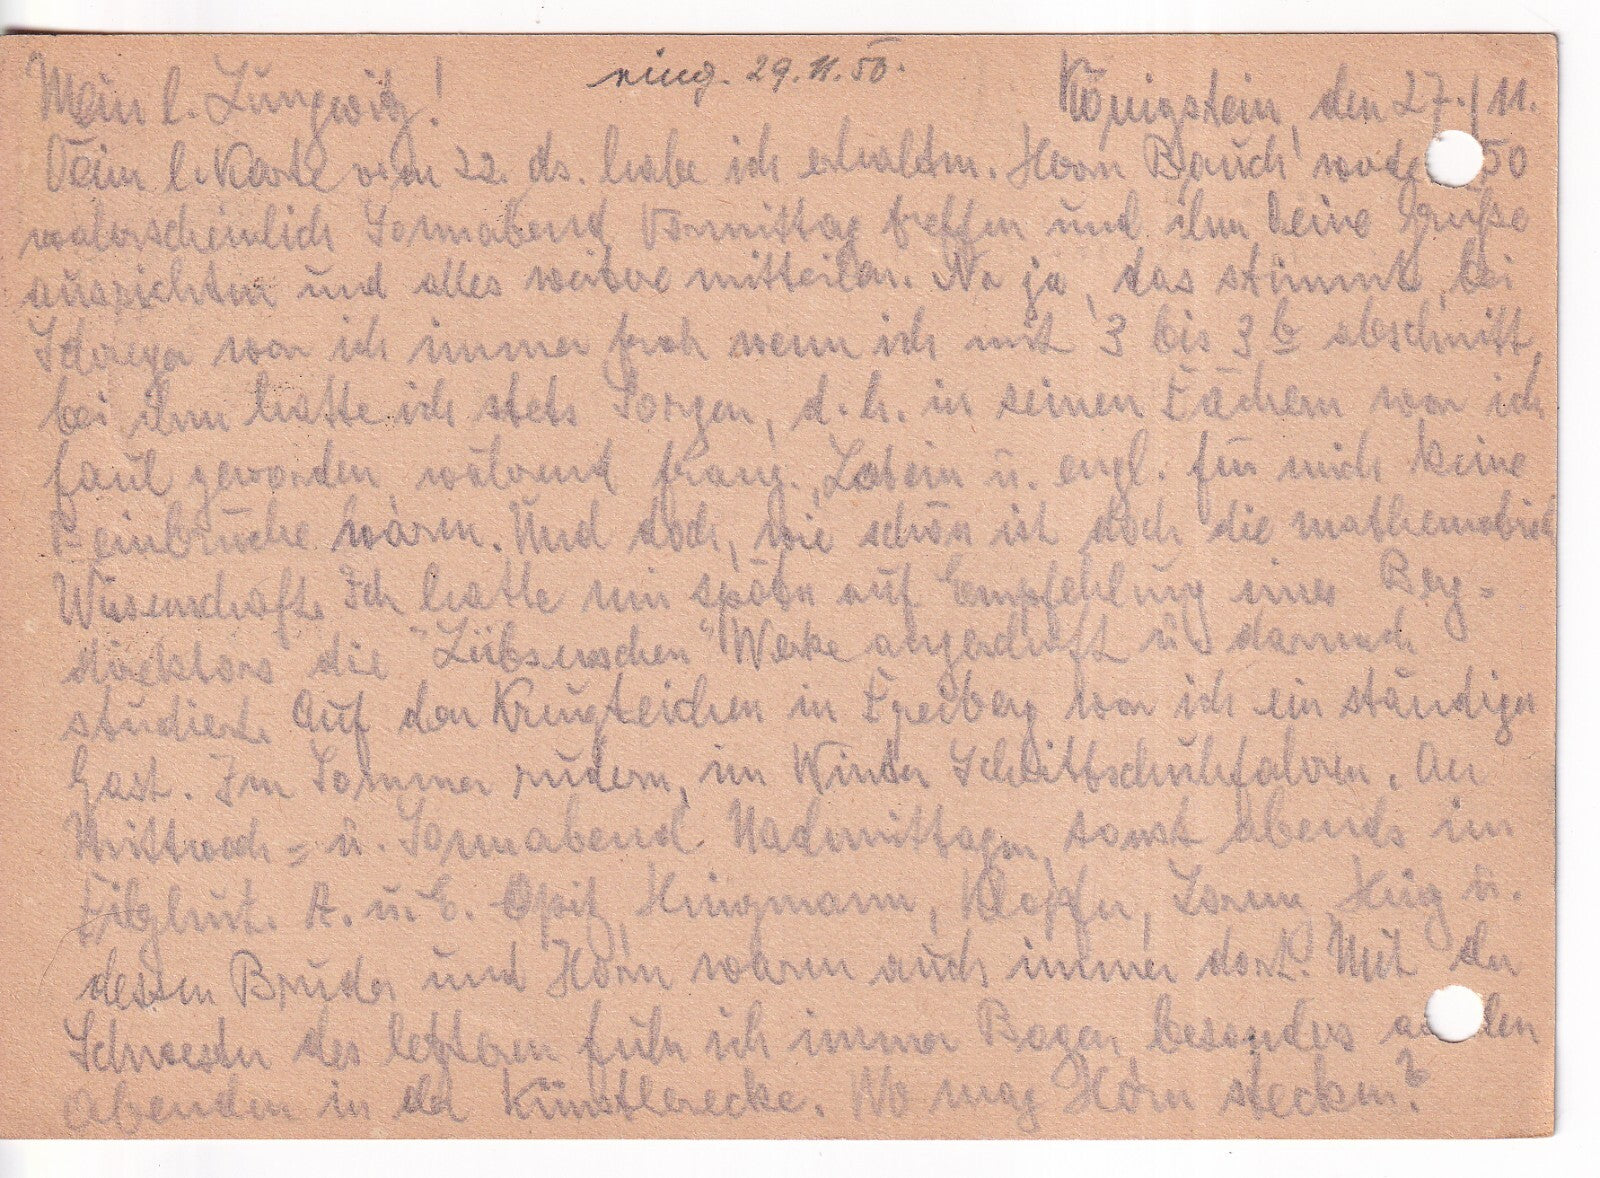 eing. 29.11.50.
Mein l. Jungwitz! Königstein, den 27./11.
Deine l. Karte vom 22. ds. habe ich erhalten. Herrn Bauch werde 50
wahrscheinlich Sonnabend Vormittag treffen und ihm Deine Grüße
ausrichten und alles weitere mitteilen. Na ja, das stimmt, bei
war ich immer froh wenn ich mit 3 bis 3 b abschnitt,
bei ihm hatte ich stets Sorgen, d. h. in seinen Fächern war ich
faul geworden während franz., Latein u. engl. für mich keine
Beinbrüche waren. Und doch, wie schön ist doch die mathematisch
Wissenschaft. Ich hatte mir später auf Empfehlung eines Berg-
direktors die "Lübsenschen" Werke angeschafft u. darnach
studiert. Auf den Kreuzteichen in Freiberg war ich ein ständiger
Gast. Im Sommer rudern, im Winter Schlittschuhfahren. An
Mittwoch- u. Sonnabend Nachmittagen, sonst abends im
A. u. C. Opitz, Klopfer, Lorenz, u.
dessen Bruder und Horn waren auch immer dort. Mit der
Schwester des letzteren fuhr ich immer Bogen besonders an den
Abenden in der Künstlerecke. Wo mag Horn stecken?